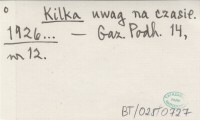 Kilka uwag na czasie.
1926... — Gaz. Podh. 14,
nr 12.
BT/025/0727